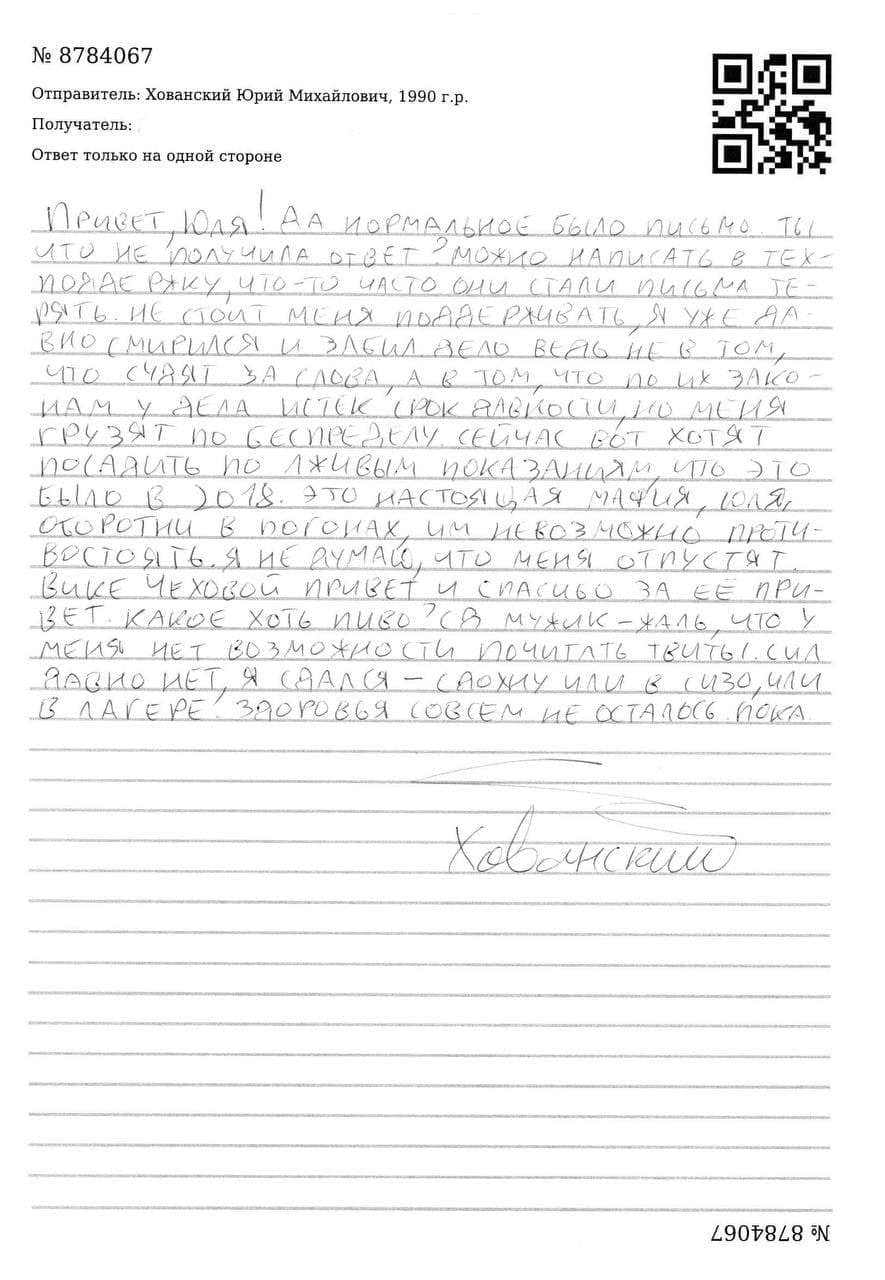 № 8784067
Отправитель: Хованский Юрий Михайлович, 1990 г.р.
Получатель:
Ответ только на одной стороне
ПРИВЕТ, ЮЛЯ! ДА НОРМАЛЬНОЕ БЫЛО ПИСЬМО. ТЫ
ЧТО НЕ ПОЛУЧИЛА ОТВЕТ? МОЖНО НАПИСАТЬ В ТЕХ-
ПОДДЕРЖКУ, ЧТО-ТО ЧАСТО ОНИ СТАЛИ ПИСЬМА ТЕ-
РЯТЬ. НЕ СТОИТ МЕНЯ ПОДДЕРЖИВАТЬ, Я УЖЕ ДА-
ВНО СМИРИЛСЯ И ЗАБИЛ. ДЕЛО ВЕДЬ НЕ В ТОМ,
ЧТО СУДЯТ ЗА СЛОВА, А В ТОМ, ЧТО ПО ИХ ЗАКО-
НАМ У ДЕЛА ИСТЕК СРОК ДАВНОСТИ, НО МЕНЯ
ГРУЗЯТ ПО БЕСПРЕДЕЛУ. СЕЙЧАС ВОТ ХОТЯТ
ПОСАДИТЬ ПО ЛЖИВЫМ ПОКАЗАНИЯМ, ЧТО ЭТО
БЫЛО В 2018. ЭТО НАСТОЯЩАЯ МАФИЯ, ЮЛЯ,
ОБОРОТНИ В ПОГОНАХ, ИМ НЕВОЗМОЖНО ПРОТИ-
ВОСТОЯТЬ. Я НЕ ДУМАЮ, ЧТО МЕНЯ ОТПУСТЯТ.
ВИКЕ ЧЕХОВОЙ ПРИВЕТ И СПАСИБО ЗА ЕЁ ПРИ-
ВЕТ. КАКОЕ ХОТЬ ПИВО? СВ МУЖИК - ЖАЛЬ, ЧТО У
МЕНЯ НЕТ ВОЗМОЖНОСТИ ПОЧИТАТЬ ТВИТЫ. СИЛ
ДАВНО НЕТ, Я СДАЛСЯ - СДОХНУ ИЛИ В СИЗО, ИЛИ
В ЛАГЕРЕ. ЗДОРОВЬЯ СОВСЕМ НЕ ОСТАЛОСЬ. ПОКА.
Хованский
№ 8784067